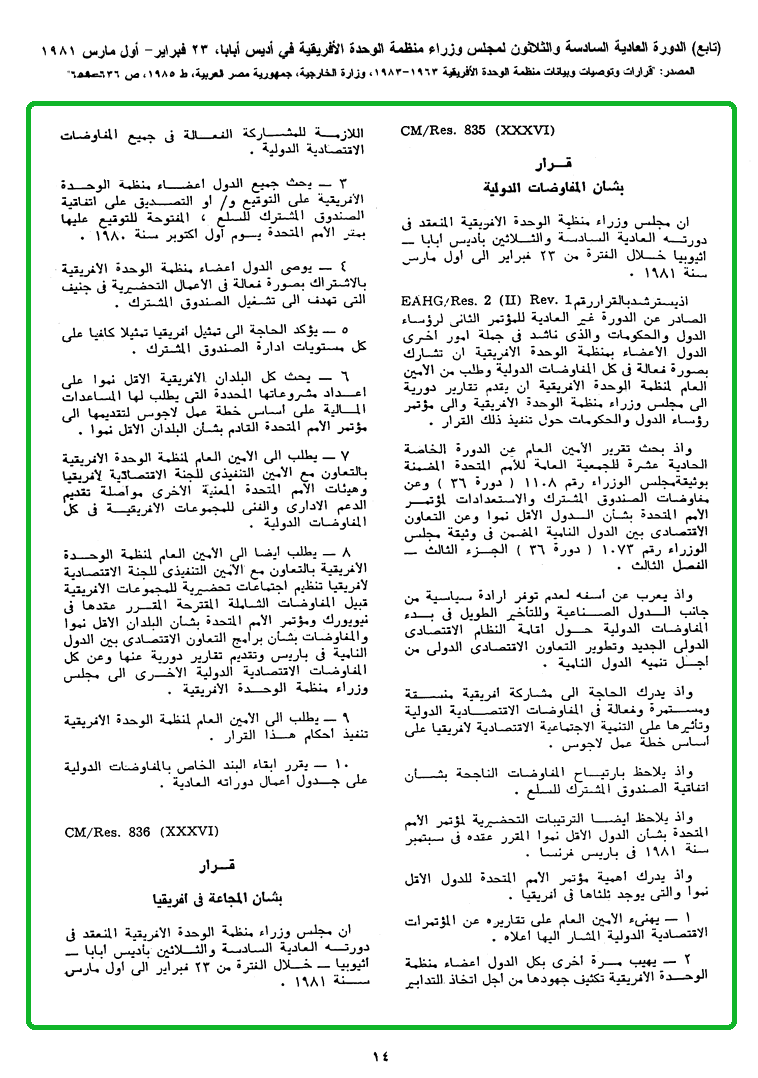 (تابع) الدورة العادية السادسة والثلاثون لمجلس وزراء منظمة الوحدة الأفريقية في أديس أبابا، ٢٣ فبراير- أول مارس ١٩٨١
المصدر: "قرارات وتوصيات وبيانات منظمة الوحدة الأفريقية ١٩٦٣-١٩٨٣، وزارة الخارجية، جمهورية مصر العربية، ط ١٩٨٥، ص
CM/Res. 835 (XXXVI)
قـــرار
بشأن المفاوضات الدولية
ان مجلس وزراء منظمة الوحدة الأفريقية المنعقد في
دورتــه العادية السادسة والثــلاثين بأديس أبابا ــ
اثيوبيا خــلال الفترة من ٢٣ فبراير الى أول مارس
سنة ١٩٨١ .
اذيسترشدبالقراررقم EAHG/Res. 2 (II) Rev. 1
الصادر عن الدورة غير العادية للمؤتمر الثانى لرؤساء
الدول والحكومات والذى ناشد في جملة امور أخرى
الدول الأعضاء بمنظمة الوحدة الأفريقية ان تشارك
بصورة فعالة فى كل المفاوضات الدولية وطلب من الأمين
العام لمنظمة الوحدة الأفريقية ان يقدم تقارير دورية
الى مجلس وزراء منظمة الوحدة الأفريقية والى مؤتمر
رؤساء الدول والحكومات حول تنفيذ ذلك القرار .
واذ بحث تقرير الأمين العام عن الدورة الخاصة
الحادية عشرة للجمعية العامة للأمم المتحدة المضمنة
بوثيقةمجلس الوزراء رقم ١١٠٨ ( دورة ٣٦ ) وعن
مفاوضات الصندوق المشترك والاستعدادات لمؤتمر
الأمم المتحدة بشأن الــدول الأقل نموا وعن التعاون
الاقتصادى بين الدول النامية المضمن فى وثيقة مجلس
الوزراء رقم ١٠٧٣ ( دورة ٣٦ ) الجــزء الثالث ــ
الفصل الثالث .
واذ يعرب عن أسفه لعدم توفر ارادة سياسية من
جانب الــدول الصــناعية وللتأخير الطويل فى بــدء
المفاوضات الدولية حــول اقامة النظام الاقتصادى
الدولى الجديد وتطوير التعاون الاقتصادى الدولى من
أجــل تنميه الدول النامية .
واذ يدرك الحاجة الى مشاركة افريقية منســقة
ومســتمرة وفعالة فى المفاوضات الاقتصادية الدولية
وتأثيرها على التنمية الاجتماعية الاقتصادية لافريقيا على
أساس خطة عمل لاجوس .
واذ يلاحظ بارتيــاح المفاوضات الناجحة بشــأن
اتفاقية الصندوق المشترك للسلع .
واذ يلاحظ أيضــا الترتيبات التحضيرية لمؤتمر الأمم
المتحدة بشأن الدول الأقل نموا المقرر عقده فى سبتمبر
سنة ١٩٨١ فى باريس فرنسا .
واذ يدرك أهمية مؤتمر الأمم المتحدة للدول الأقل
نموا والتى يوجد ثلثاها فى أفريقيا .
١ ــ يهنىء الأمين العام على تقاريره عن المؤتمرات
الاقتصادية الدولية المشار اليها أعلاه .
٢ ــ يهيب مــرة أخرى بكل الدول أعضاء منظمة
الوحــدة الأفريقية تكثيف جهودها من أجل اتخاذ التدابير
اللازمــة للمشــاركة الفعــالة فى جميع المفاوضات
الاقتصادية الدولية .
٣ ــ يحث جميع الدول اعضــاء منظمة الوحــدة
الأفريقية على التوقيع و/ أو التصديق على اتفاقية
الصندوق المشــترك للسلع ، المفتوحة للتوقيع عليها
بمقر الأمم المتحدة يــوم أول اكتوبر سنة ١٩٨٠ .
٤ ــ يوصى الدول اعضاء منظمة الوحدة الأفريقية
بالاشتراك بصورة فعالة فى الأعمال التحضيرية فى جنيف
التى تهدف الى تشغيل الصندوق المشترك .
٥ ــ يؤكد الحاجة الى تمثيل أفريقيا تمثيلا كافيا على
كل مستويات ادارة الصندوق المشترك .
٦ ــ يحث كل البلدان الأفريقية الأقل نموا على
اعــداد مشروعاتها المحددة التى يطلب لها المساعدات
المــالية على أساس خطة عمل لاجوس لتقديمها الى
مؤتمر الأمم المتحدة القادم بشأن البلدان الأقل نموا .
٧ ــ يطلب الى الأمين العام لمنظمة الوحدة الأفريقية
بالتعاون مع الأمين التنفيذى للجنة الاقتصادية لافريقيا
وهيئات الأمم المتحدة المعنية الأخرى مواصلة تقديم
الدعم الادارى والفنى للمجموعات الأفريقيــة فى كل
المفاوضات الدولية .
٨ ــ يطلب أيضا الى الأمين العام لمنظمة الوحــدة
الأفريقية بالتعاون مع الأمين التنفيذى للجنة الاقتصادية
لافريقيا تنظيم اجتماعات تحضيرية للمجموعات الأفريقية
قبيل المفاوضات الشاملة المقترحة المقــرر عقدها فى
نيويورك ومؤتمر الأمم المتحدة بشأن البلدان الأقل نموا
والمفاوضات بشأن برامج التعاون الاقتصادى بين الدول
النامية فى باريس وتقديم تقارير دورية عنها وعن كل
المفاوضات الاقتصادية الدولية الأخــرى الى مجلس
وزراء منظمة الوحــدة الأفريقية .
٩ ــ يطلب الى الأمين العام لمنظمة الوحدة الأفريقية
تنفيذ أحكام هــذا القرار .
١٠ ــ يقرر ابقاء البند الخاص بالمفاوضات الدولية
على جــدول أعمال دوراته العادية .
CM/Res. 836 (XXXVI)
قـــرار
بشأن المجاعة فى أفريقيا
ان مجلس وزراء منظمة الوحدة الأفريقية المنعقد فى
دورتــه العادية السادسة والثــلاثين بأديس أبابا ــ
أثيوبيا ــ خــلال الفترة من ٢٣ فبراير الى أول مارس
ســنة ١٩٨١ .
١٤